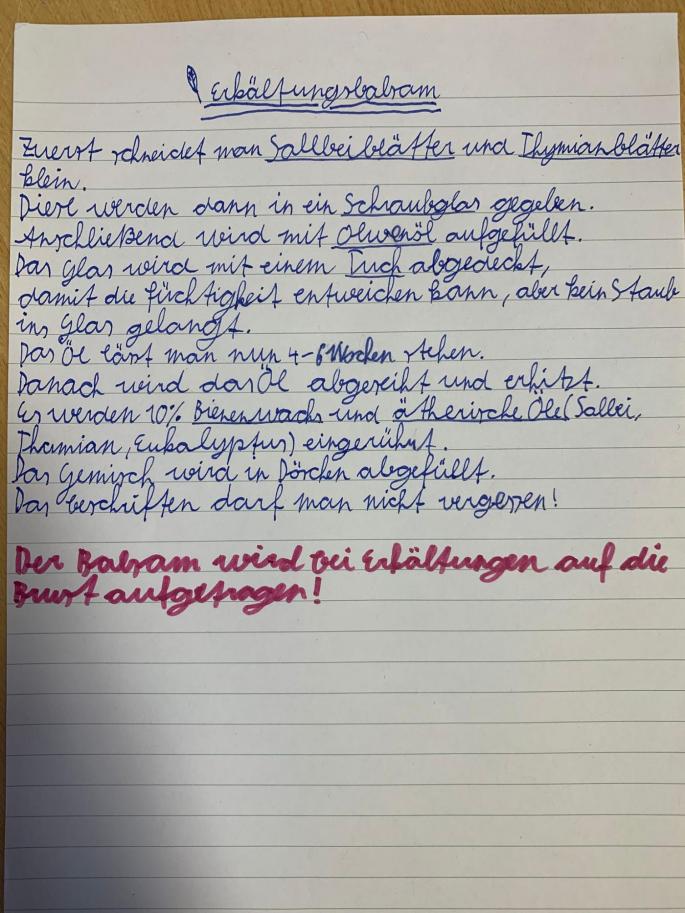 Erkältungsbalsam
Zuerst schneidet man Sallbeiblätter und Thymianblätter
klein.
Diese werden dann in ein Schraubglas gegeben.
Anschließend wird mit Olivenöl aufgefüllt.
Das Glas wird mit einem Tuch abgedeckt,
damit die füchtigkeit entweichen kann, aber kein Staub
ins Glas gelangt.
Das Öl lässt man nun 4-6 Wochen stehen.
Danach wird das Öl abgeseiht und erhitzt.
Es werden 10% Bienenwachs und ätherische Öle (Sallbei,
Thamian, Eukalyptus) eingerührt.
Das Gemisch wird in Döschen abgefüllt.
Das beschriften darf man nicht vergessen!
Der Balsam wird bei Erkältungen auf die
Brust aufgetragen!